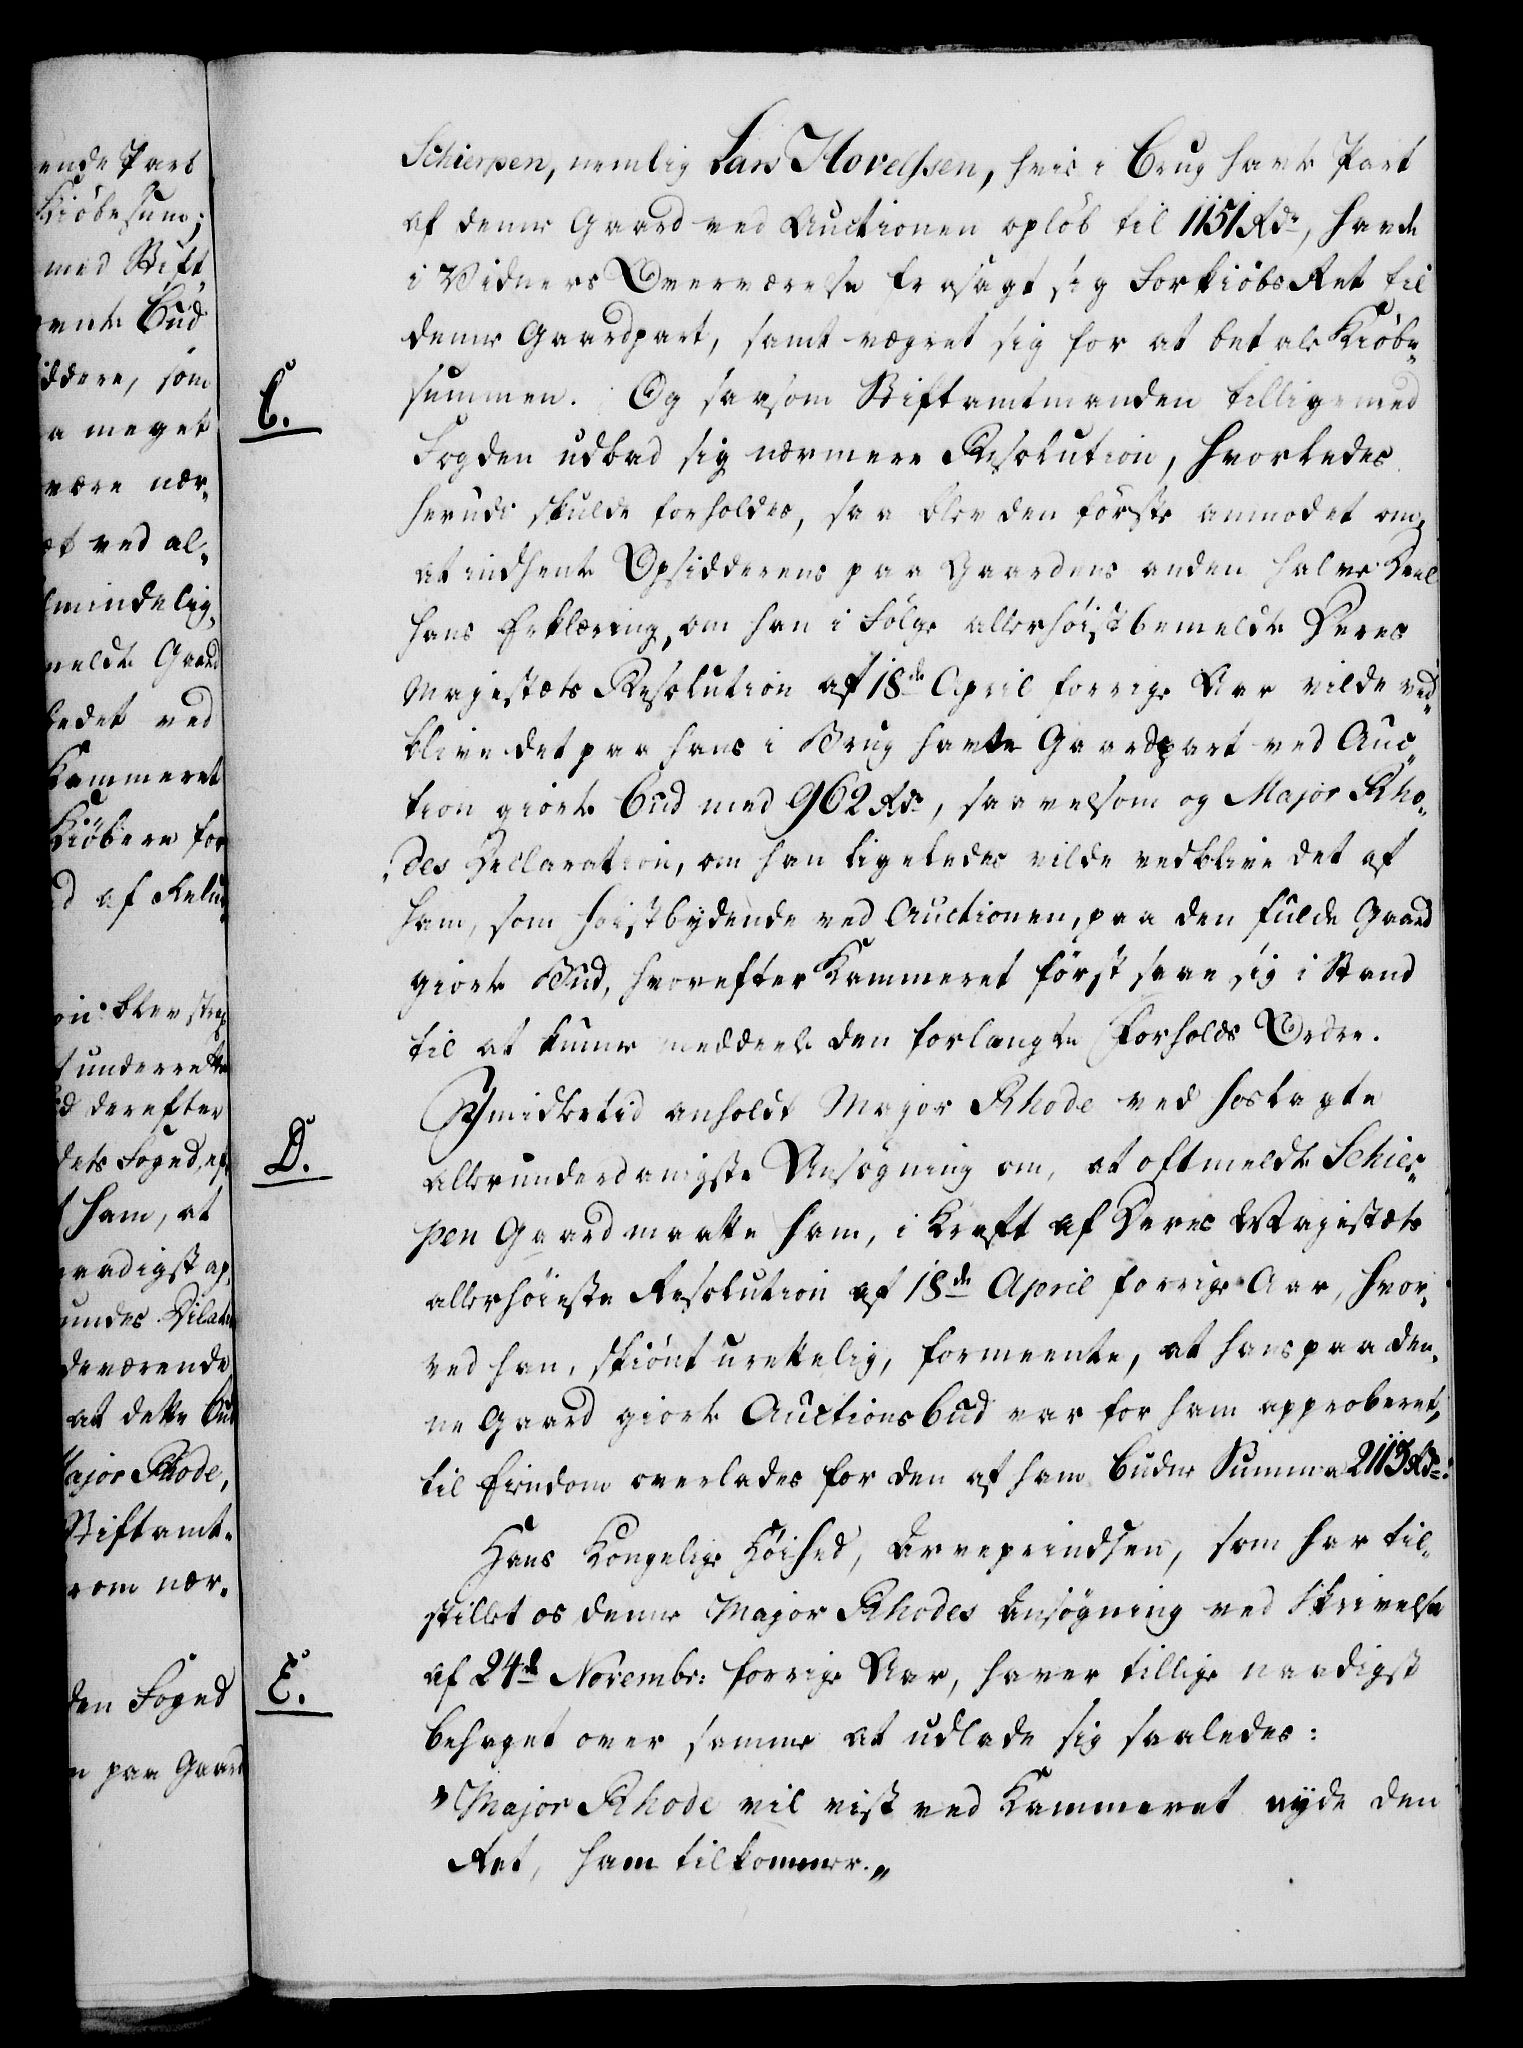 ende Part
Kiöbesum;
med Stift
vente Bud
iddere, som
a meget
være nær-
et ved al-
lmindelig
meldte Gaard
ledet ved
Kammeret
Kiöbere for
d af
blev strax
underrette
d derefter
dets Foged,
ham, at
naadigst ap-
undes
deværende
at dette Bud
Major Rhode,
Stiftamt-
om nær-
den Foged
n paa Gaard
Schierpen, nemlig Lars Hovelssen, hvis i Brug havte Part
af denne Gaard ved Auctionen opløb til 1151 Rdr, havde
i Vidners Overværelse frasagt sig Forkiöbs Ret til
denne Gaardpart, samt vægret sig for at betale Kiöbe-
C.
summen. Og saasom Stiftamtmanden tilligemed
Fogden udbad sig nærmere Resolution, hvorledes
herudi skulde forholdes, saa blev den förste anmodet om,
at indhente Opsidderens paa Gaardens anden halve Deel
hans Erklæring, om han i Fölge allerhöistbemeldte Deres
Majestæts Resolution af 18de April forrige Aar vilde ved-
blive det paa hans i Brug havte Gaardpart ved Auc-
tion giorte Bud med 962 Rdr, saavelsom og Major Rho-
des Declaration, om han ligeledes vilde vedblive det af
ham, som höistbydende ved Auctionen, paa den fulde Gaard
giorte Bud, hvorefter Kammeret först saae sig i Stand
til at kunne meddeele den forlangte Forholds Ordre.
Imidlertid anholdt Major Rhode ved hoslagte
D.
allerunderdanigste Ansögning om, at oftmeldte Schier-
pen Gaard maatte ham, i Kraft af Deres Majestæts
allerhöieste Resolution af 18de April forrige Aar, hvor-
ved han, skiönt urettelig, formeente, at hans paa den-
ne Gaard giorte Auctionsbud var for ham approberet,
til Eiendom overlades for den af ham budne Summa 2113 Rdr:
Hans Kongelige Höihed, Arveprindsen, som har til-
stillet os denne Major Rhodes Ansögning ved Skrivelse
E.
af 24de Novembr: forrige Aar, haver tillige naadigst
behaget over samme at udlade sig saaledes:
"Major Rhode vil vist ved Kammeret nyde den
Ret, ham tilkommer."